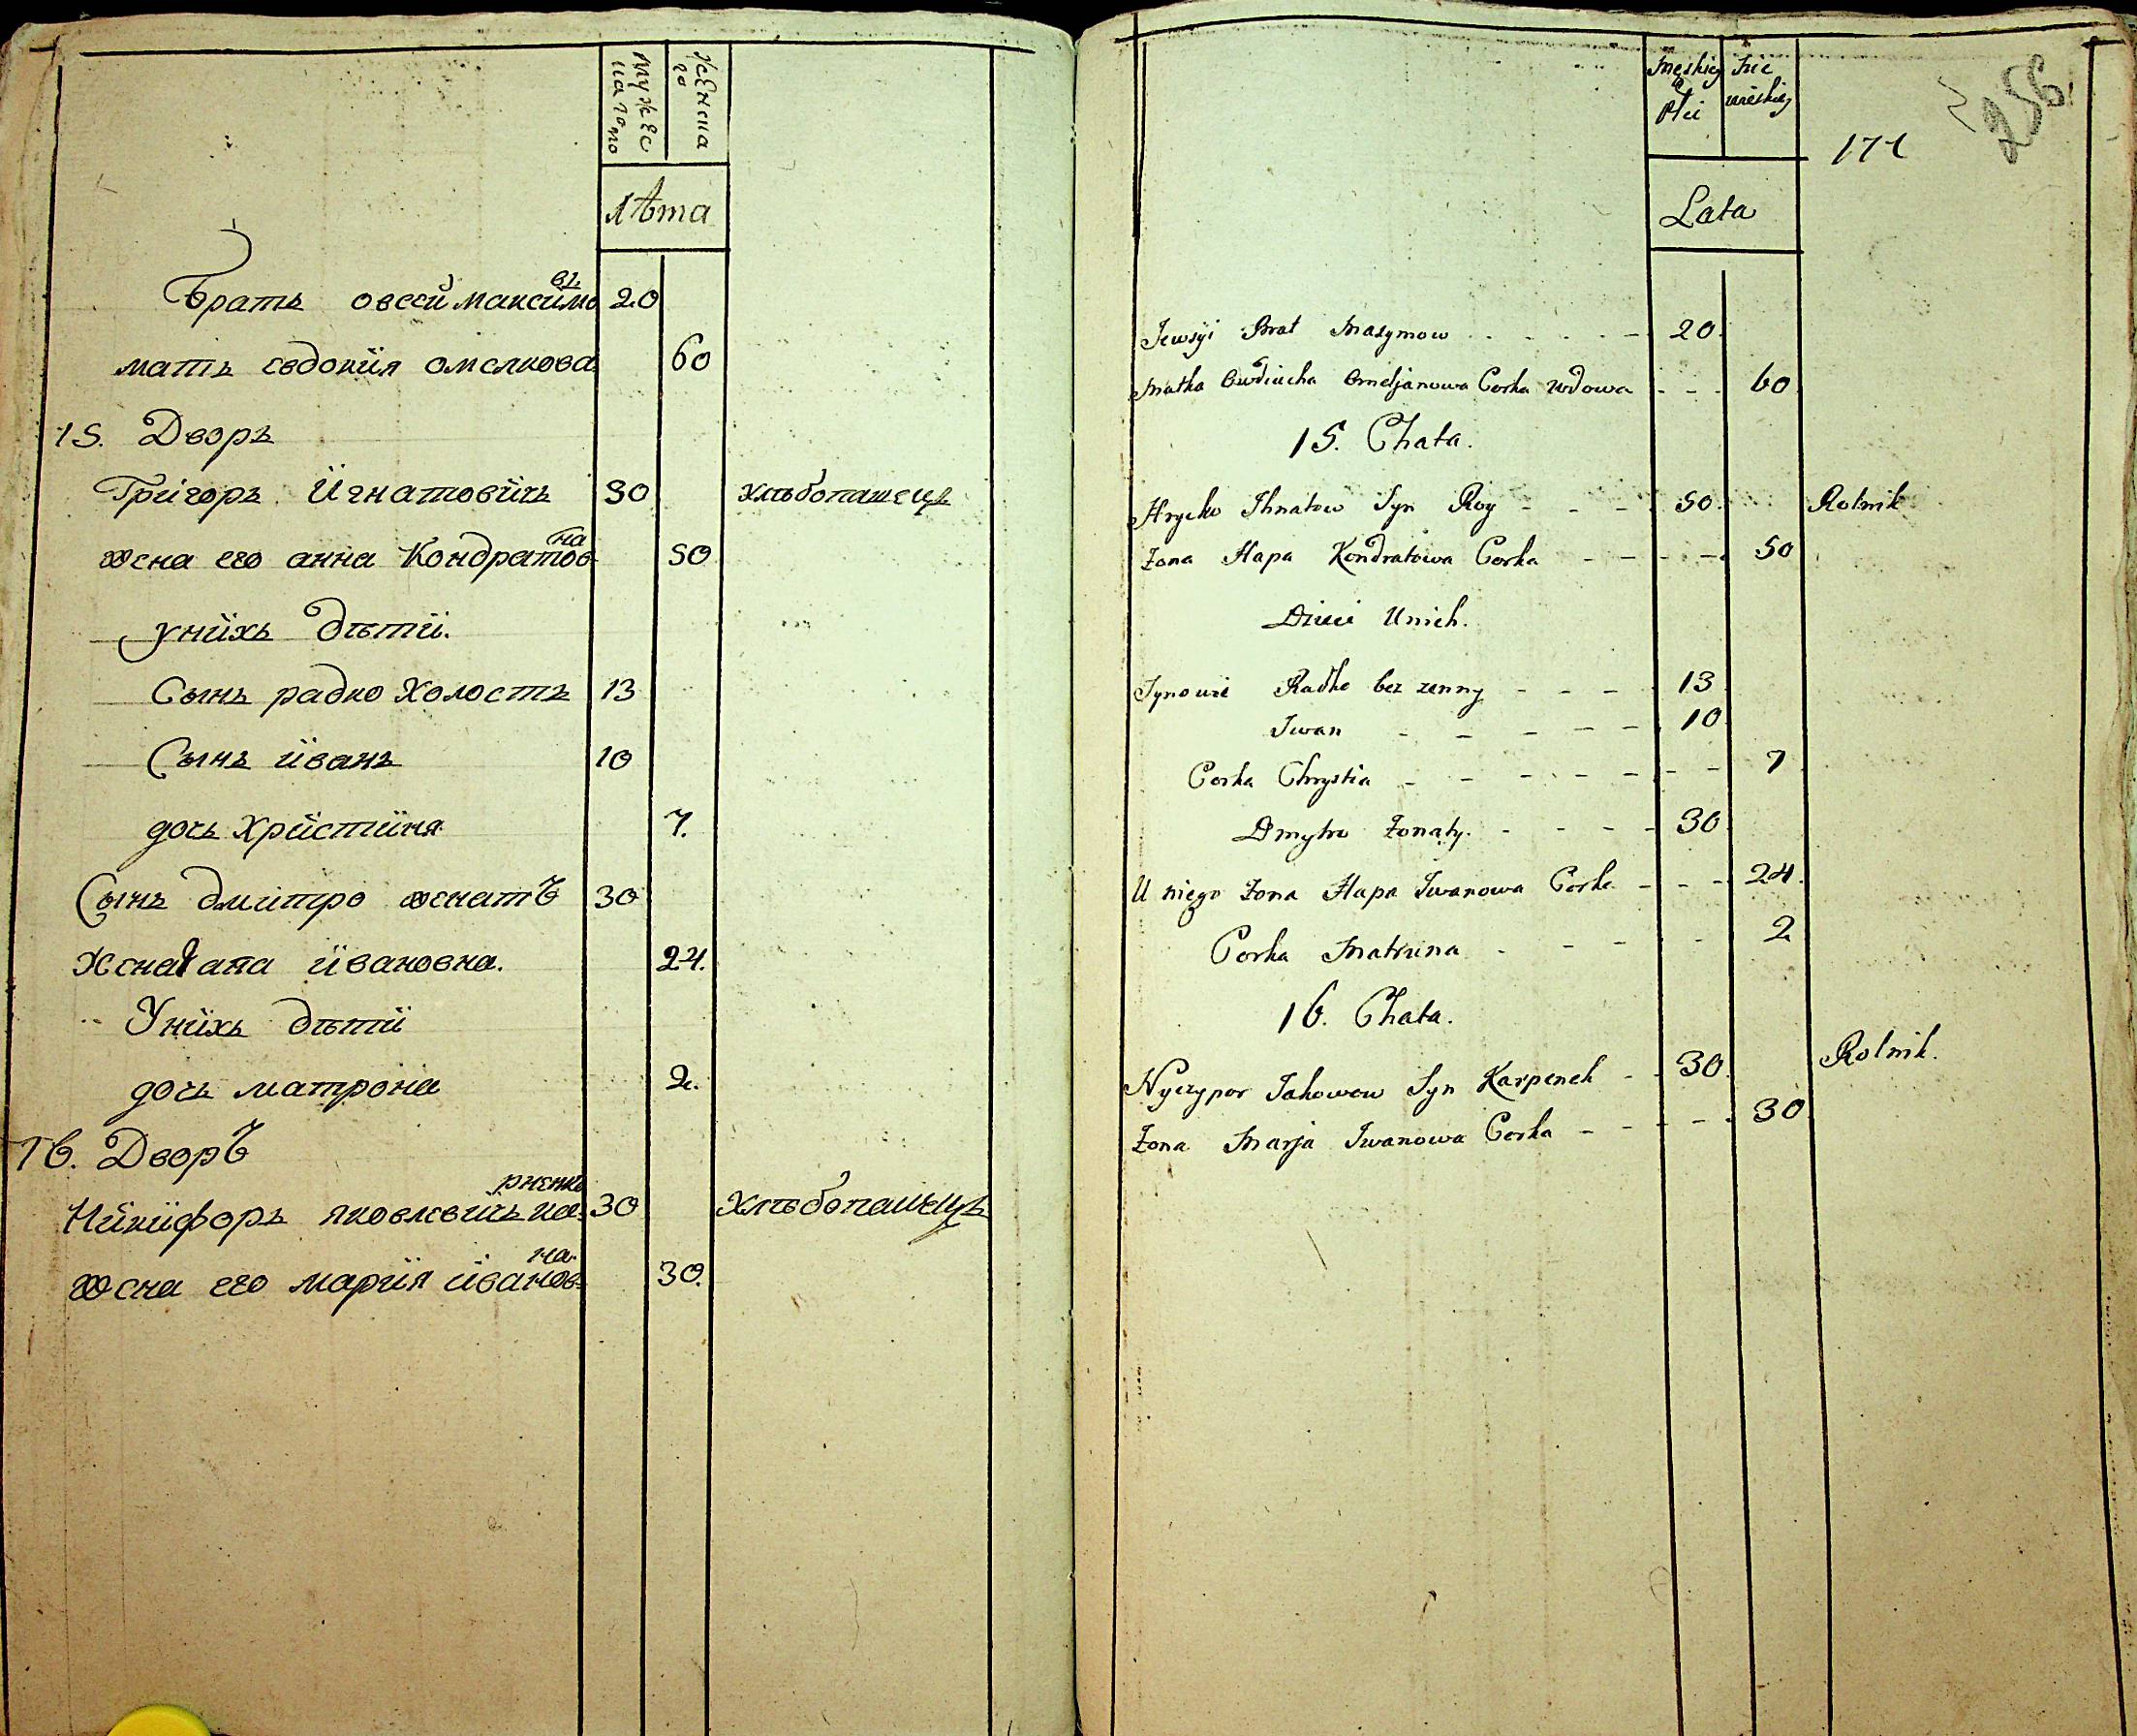 мужес
каго
женска
го
лѣта
Братъ овсей максимовъ 20
мать евдокїя омелкова 60
15. Дворъ
Грїгоръ Їгнатовїчъ 50 хлѣбопашецъ
жена его анна Кондратовна 50
унїхъ дѣтї.
Сынъ радко Холостъ 13
Сынъ їванъ 10
дочь Хрїстїня 7.
Сынъ дмїтро женатъ 30
Жена гапа ївановна. 24.
Унїхъ дѣтї
дочь матрона 2.
16. Дворъ
Нїкїфоръ яковлевїчъ карпенко 30 хлѣбопашецъ
жена его марїя ївановна 30.
Męskiey Płci
Nie wieskiey
171
256.
Lata
Jewsyi Brat Maxymow 20.
Matka Owdiucha Omeljanowa Corka Wdowa 60
15. Chata.
Hrycko Ihnatow Syn Roy 50. Rolnik
Żona Hapa Kondratowa Corka 50
Dzieci Unich.
Synowie Radko bez zenny 13
Iwan 10
Corka Chrystia 7
Dmytro Żonaty. 30
U niego Żona Hapa Iwanowa Corka 24.
Corka Matruna 2
16. Chata.
Nyczypor Jakowow Syn Karpenek 30. Rolnik.
Żona Marja Iwanowa Corka 30